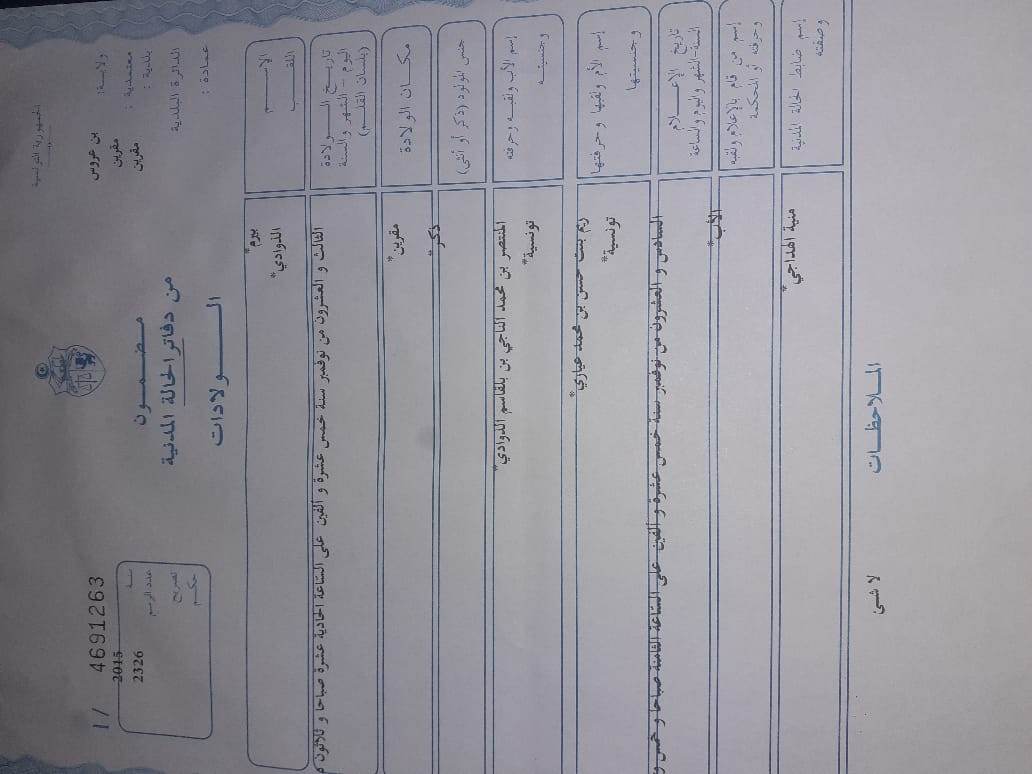 الجمهورية التونسية
ولاية: بن عروس
معتمدية: مقرين
بلدية: مقرين
الدائرة البلدية
عمادة :
مضمون
من دفاتر الحالة المدنية
الولادات
1/ 4691263
سنة 2015
عدد الرسم 2326
تصريح
حكم
الاسم بيرم*
اللقب الذوادي*
تاريخ الولادة
اليوم - الشهر والسنة
(بلسان القلم)
الثالث و العشرون من نوفمبر سنة خمس عشرة و ألفين على الساعة الحادية عشرة صباحا و ثلاثون
مكان الولادة مقرين*
جنس المولود (ذكر أو أنثى) ذكر*
إسم الأب ولقبه وحرفته
وجنسيته
المنتصر بن محمد الناجي بن بلقاسم الذوادي*
تونسية*
إسم الأم ولقبها وحرفتها
وجنسيتها
ريم بنت حسن بن محمد عياري*
تونسية*
تاريخ الإعلام
السنة-الشهر واليوم والساعة
السادس و العشرون من نوفمبر سنة خمس عشرة و ألفين على الساعة الثامنة صباحا و خمس و
إسم من قام بالإعلام ولقبه
وحرفته أو المحكمة
الأب*
إسم ضابط الحالة المدنية
وصفته
منية الهداجي*
الملاحظات
لا شئ